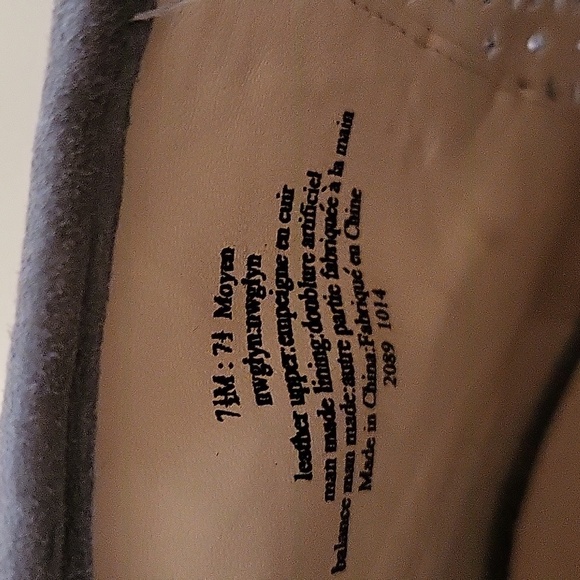 7½M : 7½ Moyen
nwglyn:nwglyn
leather upper:empeigne en cuir
man made lining:doublure artificiel
balance man made:autre partie fabriquée à la main
Made in China:Fabriqué en Chine
2089 1014